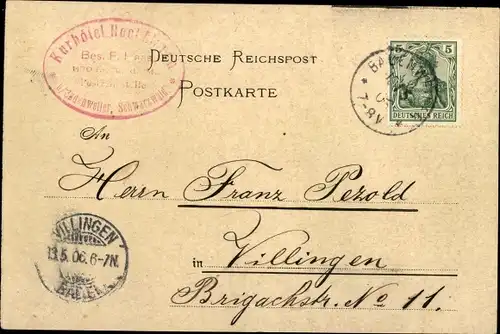 Kurhôtel
Bes. F.
Schwarzwald
DEUTSCHE REICHSPOST
POSTKARTE
5 5
DEUTSCHES REICH
7-8V
An
Herrn Franz Pezold
in Villingen
Brigachstr. No 11.
VILLINGEN
13.5.06.6-7N.
BADEN